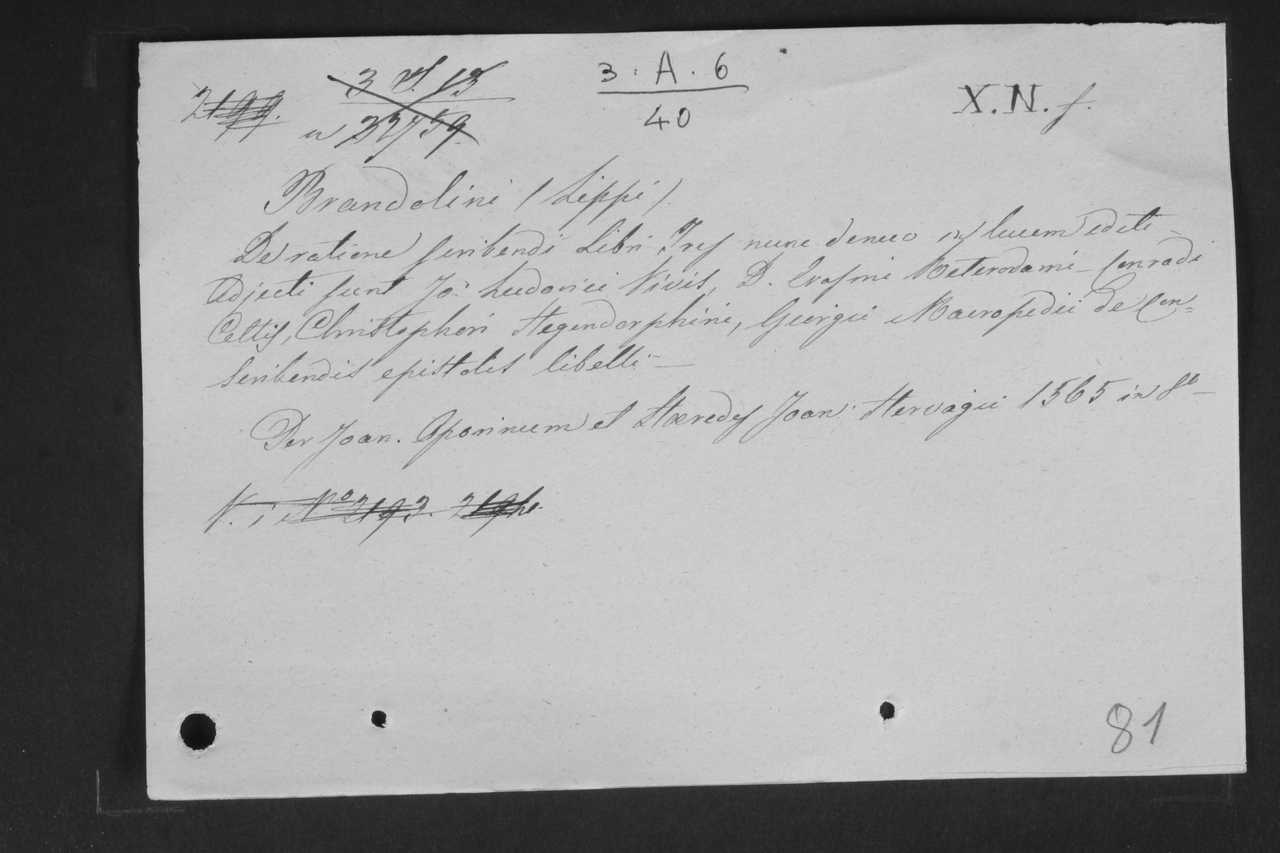 3 . A . 6
40
X. N. f.
Brandolini (Lippi)
De ratione scribendi Libri Tres nunc denuo in lucem editi
Adjecti sunt Jo: Ludovici Vivis, D. Erasmi Roterodami – Conradi
Celtis, Christophori Hegendorphini, Georgii Macropedii de Con=
scribendis epistolis libelli –
Per Joan. Oporinum et Hæredes Joan: Hervagii 1565 in 8º –
V. i Nº 2193.
81